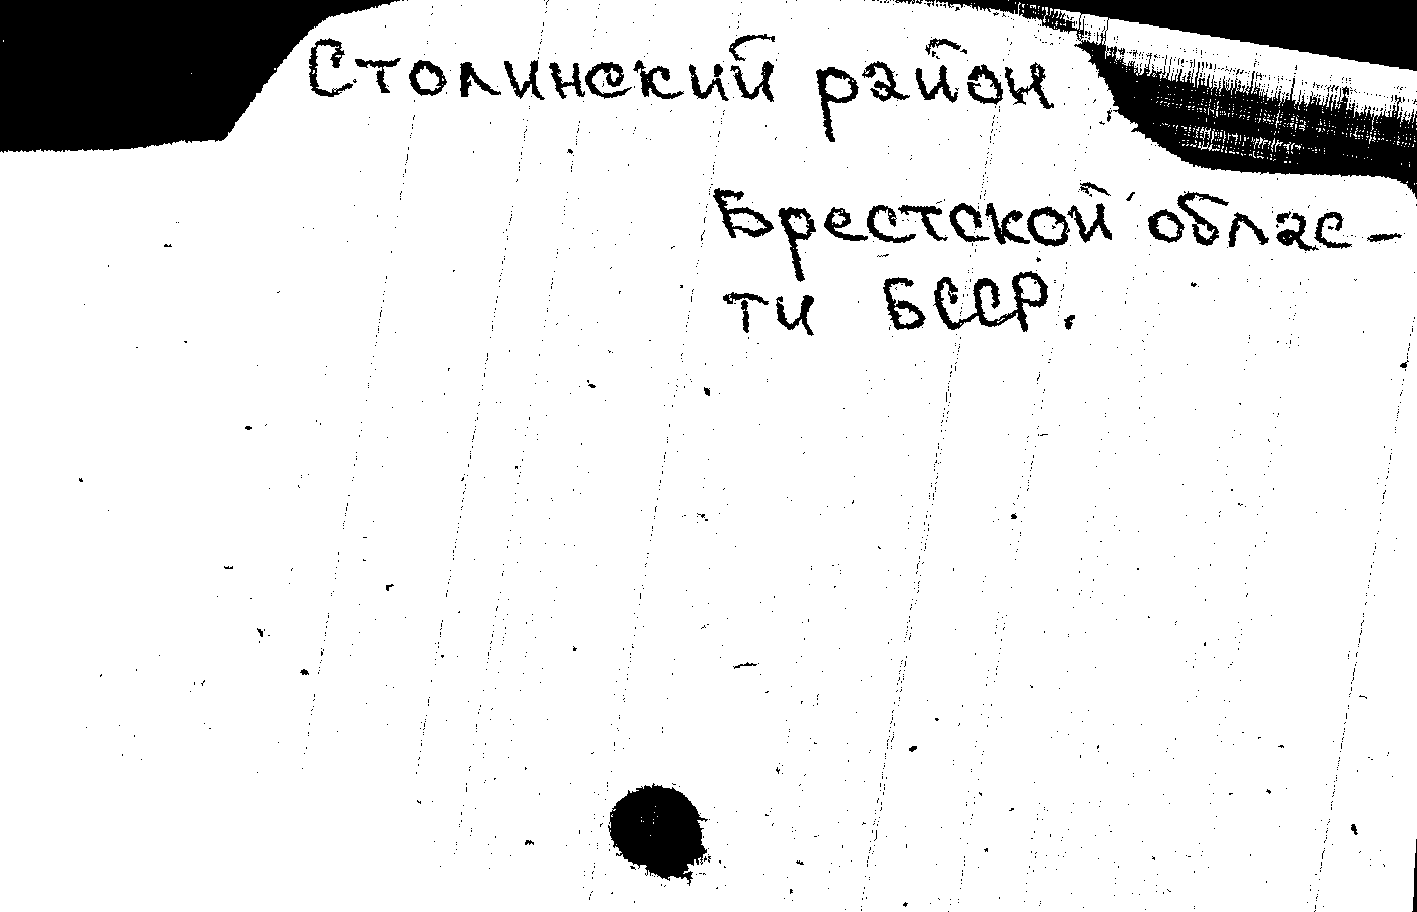 Столинский район
Брестской облас-
ти БССР.